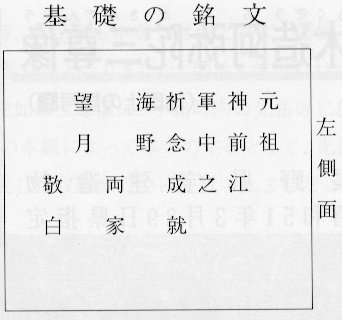 基礎の銘文
左側面
元祖
神前江
軍中之
祈念成就
海野
両家
望月
敬白